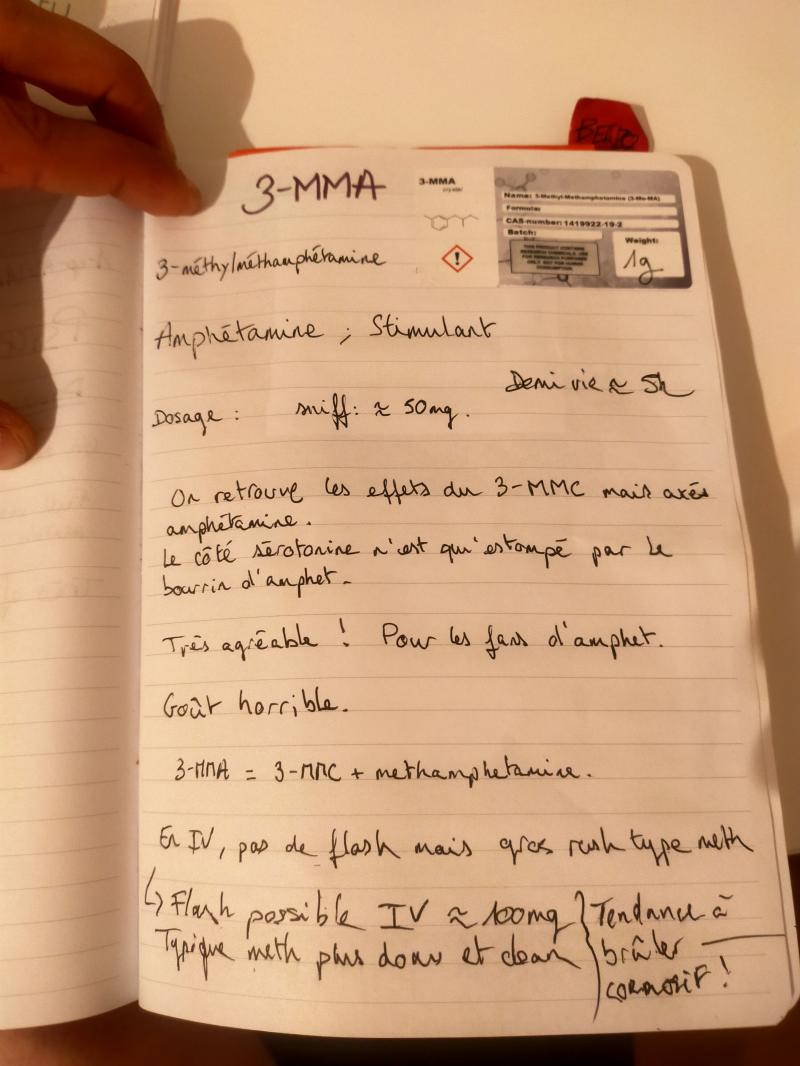 BENZO
3-MMA
3-MMA
crystal
Name: 3-Methyl-Methamphetamine (3-Me-MA)
Formula:
CAS-number: 1419922-19-2
Batch:
Weight:
1g
THIS PRODUCT CONTAINS
RESEARCH CHEMICALS. USE
FOR RESEARCH PURPOSES
ONLY. NOT FOR HUMAN
CONSUMPTION
3-méthylméthamphétamine
Amphétamine ; Stimulant
Demi vie ≈ 5h
Dosage : sniff: ≈ 50mg.
On retrouve les effets du 3-MMC mais axés
amphétamine.
Le côté sérotonine n'est qu'estompé par le
bourrin d'amphet.
Très agréable ! Pour les fans d'amphet.
Goût horrible.
3-MMA = 3-MMC + methamphetamine.
En IV, pas de flash mais gros rush type meth
↳ Flash possible IV ≈ 100mg
Typique meth plus doux et clean
Tendance à
brûler
corrosif !